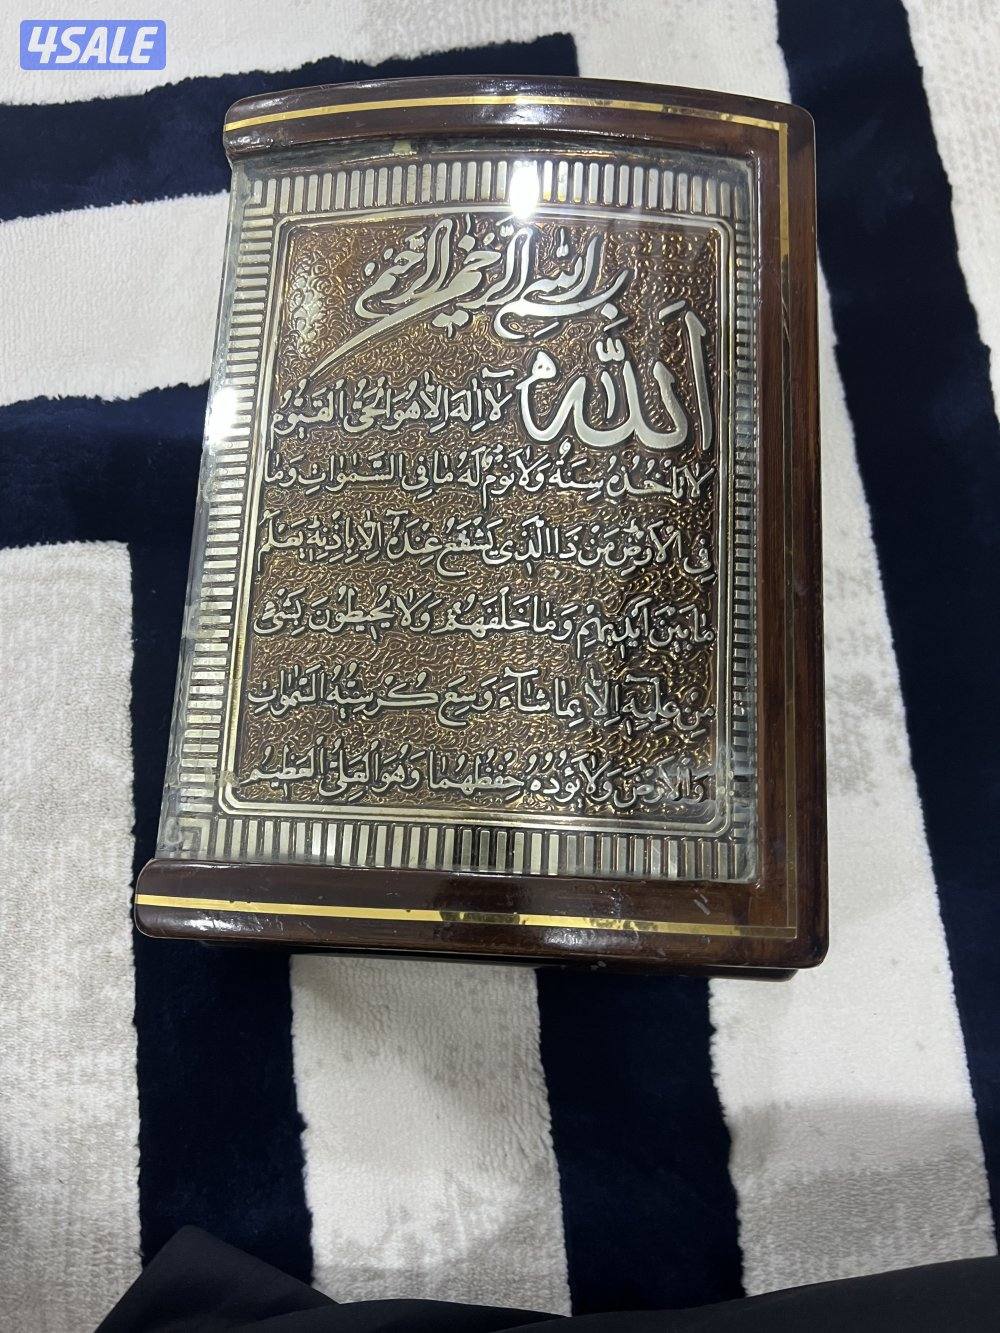 4SALE
بسم الله الرحمن الرحيم
الله لا اله الا هو الحي القيوم
لا تأخذه سنة ولا نوم له ما في السموات وما
في الارض من ذا الذي يشفع عنده الا باذنه يعلم
ما بين ايديهم وما خلفهم ولا يحيطون بشئ
من علمه الا بما شاء وسع كرسيه السموات
والارض ولا يؤده حفظهما وهو العلي العظيم